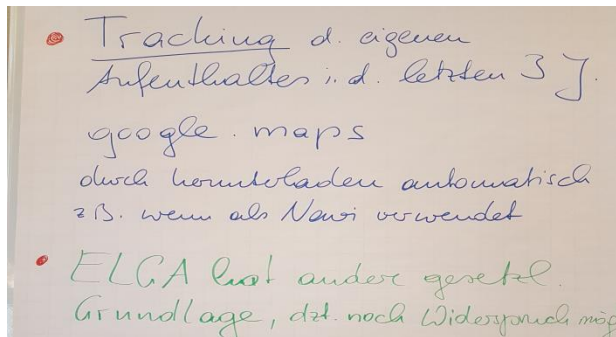 Tracking d. eigenen
Aufenthaltes i. d. letzten 3 J.
google. maps
durch herunterladen automatisch
zB. wenn als Navi verwendet
ELGA hatander gesetzl.
Grundlage, dzt. noch Widerspruch mög